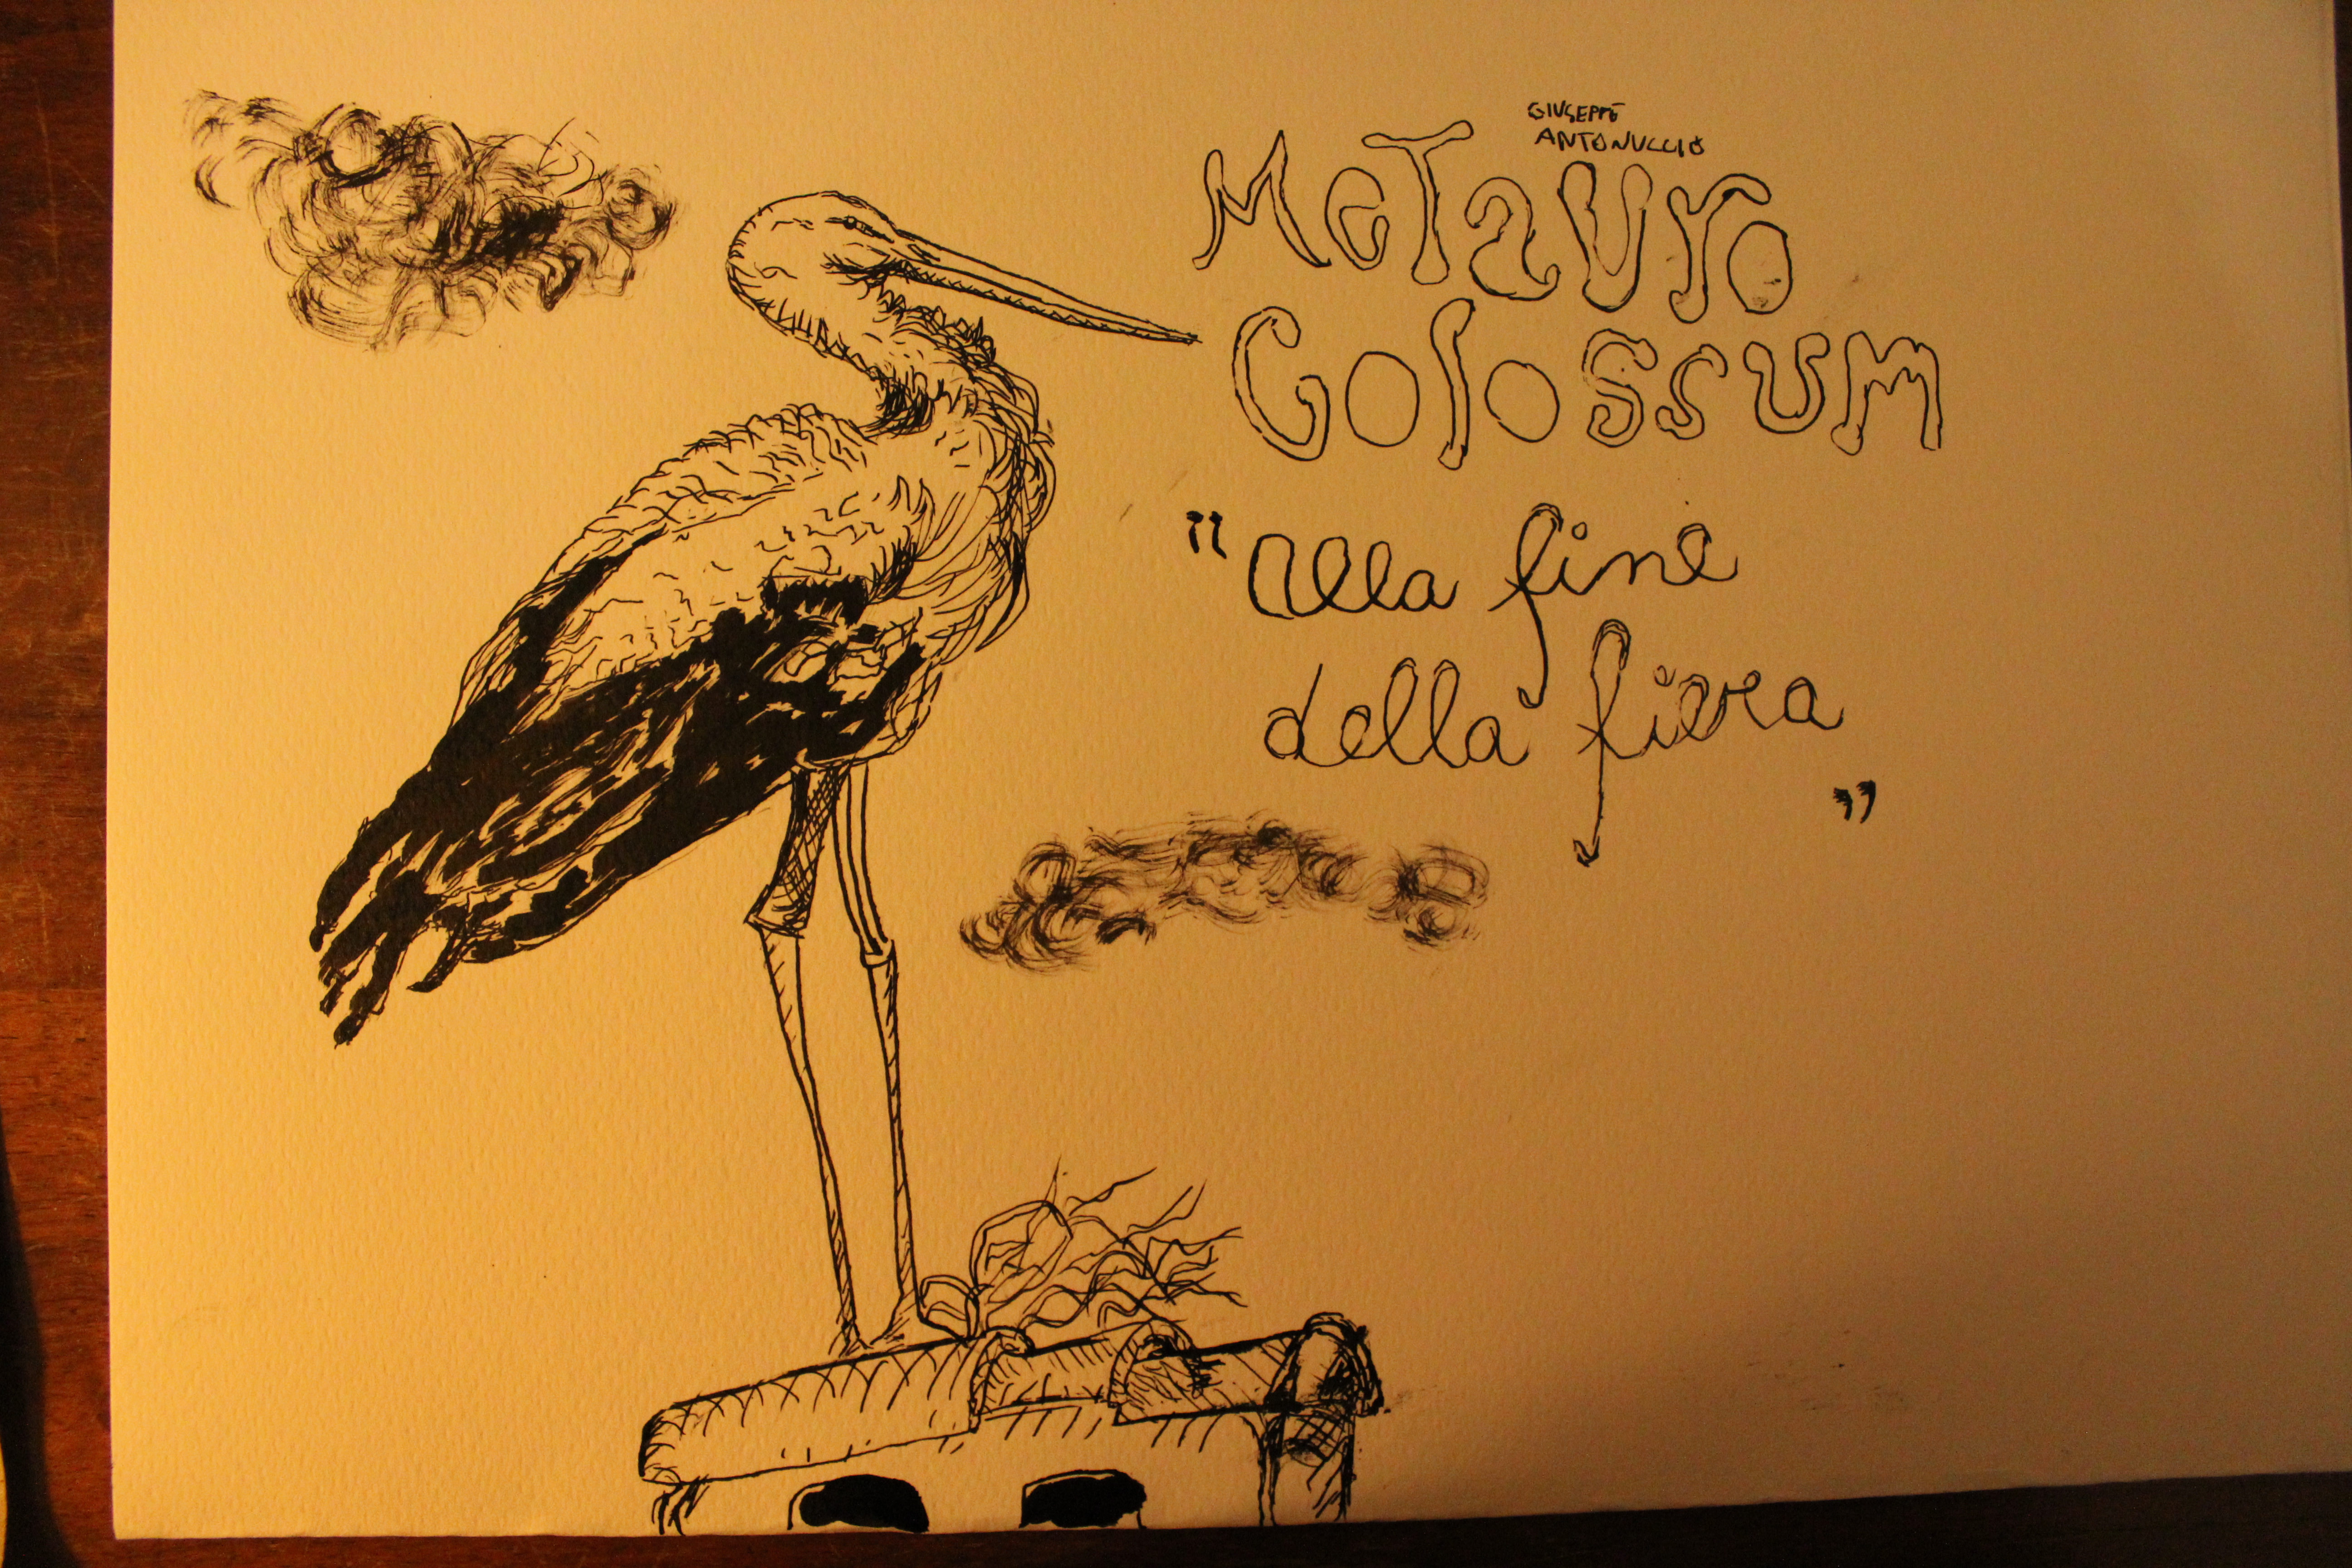 GIUSEPPE
ANTONUCCIO
MeTauro
Colossum
"alla fine
della fiera
"